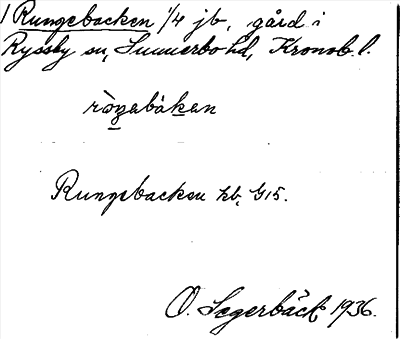 1 Rungebacken 1/4 jb, gård i
Ryssby sn, Sunnerbo hd, Kronob. l.
Rungebacken kb, G15.
O. Segerbäck 1936.